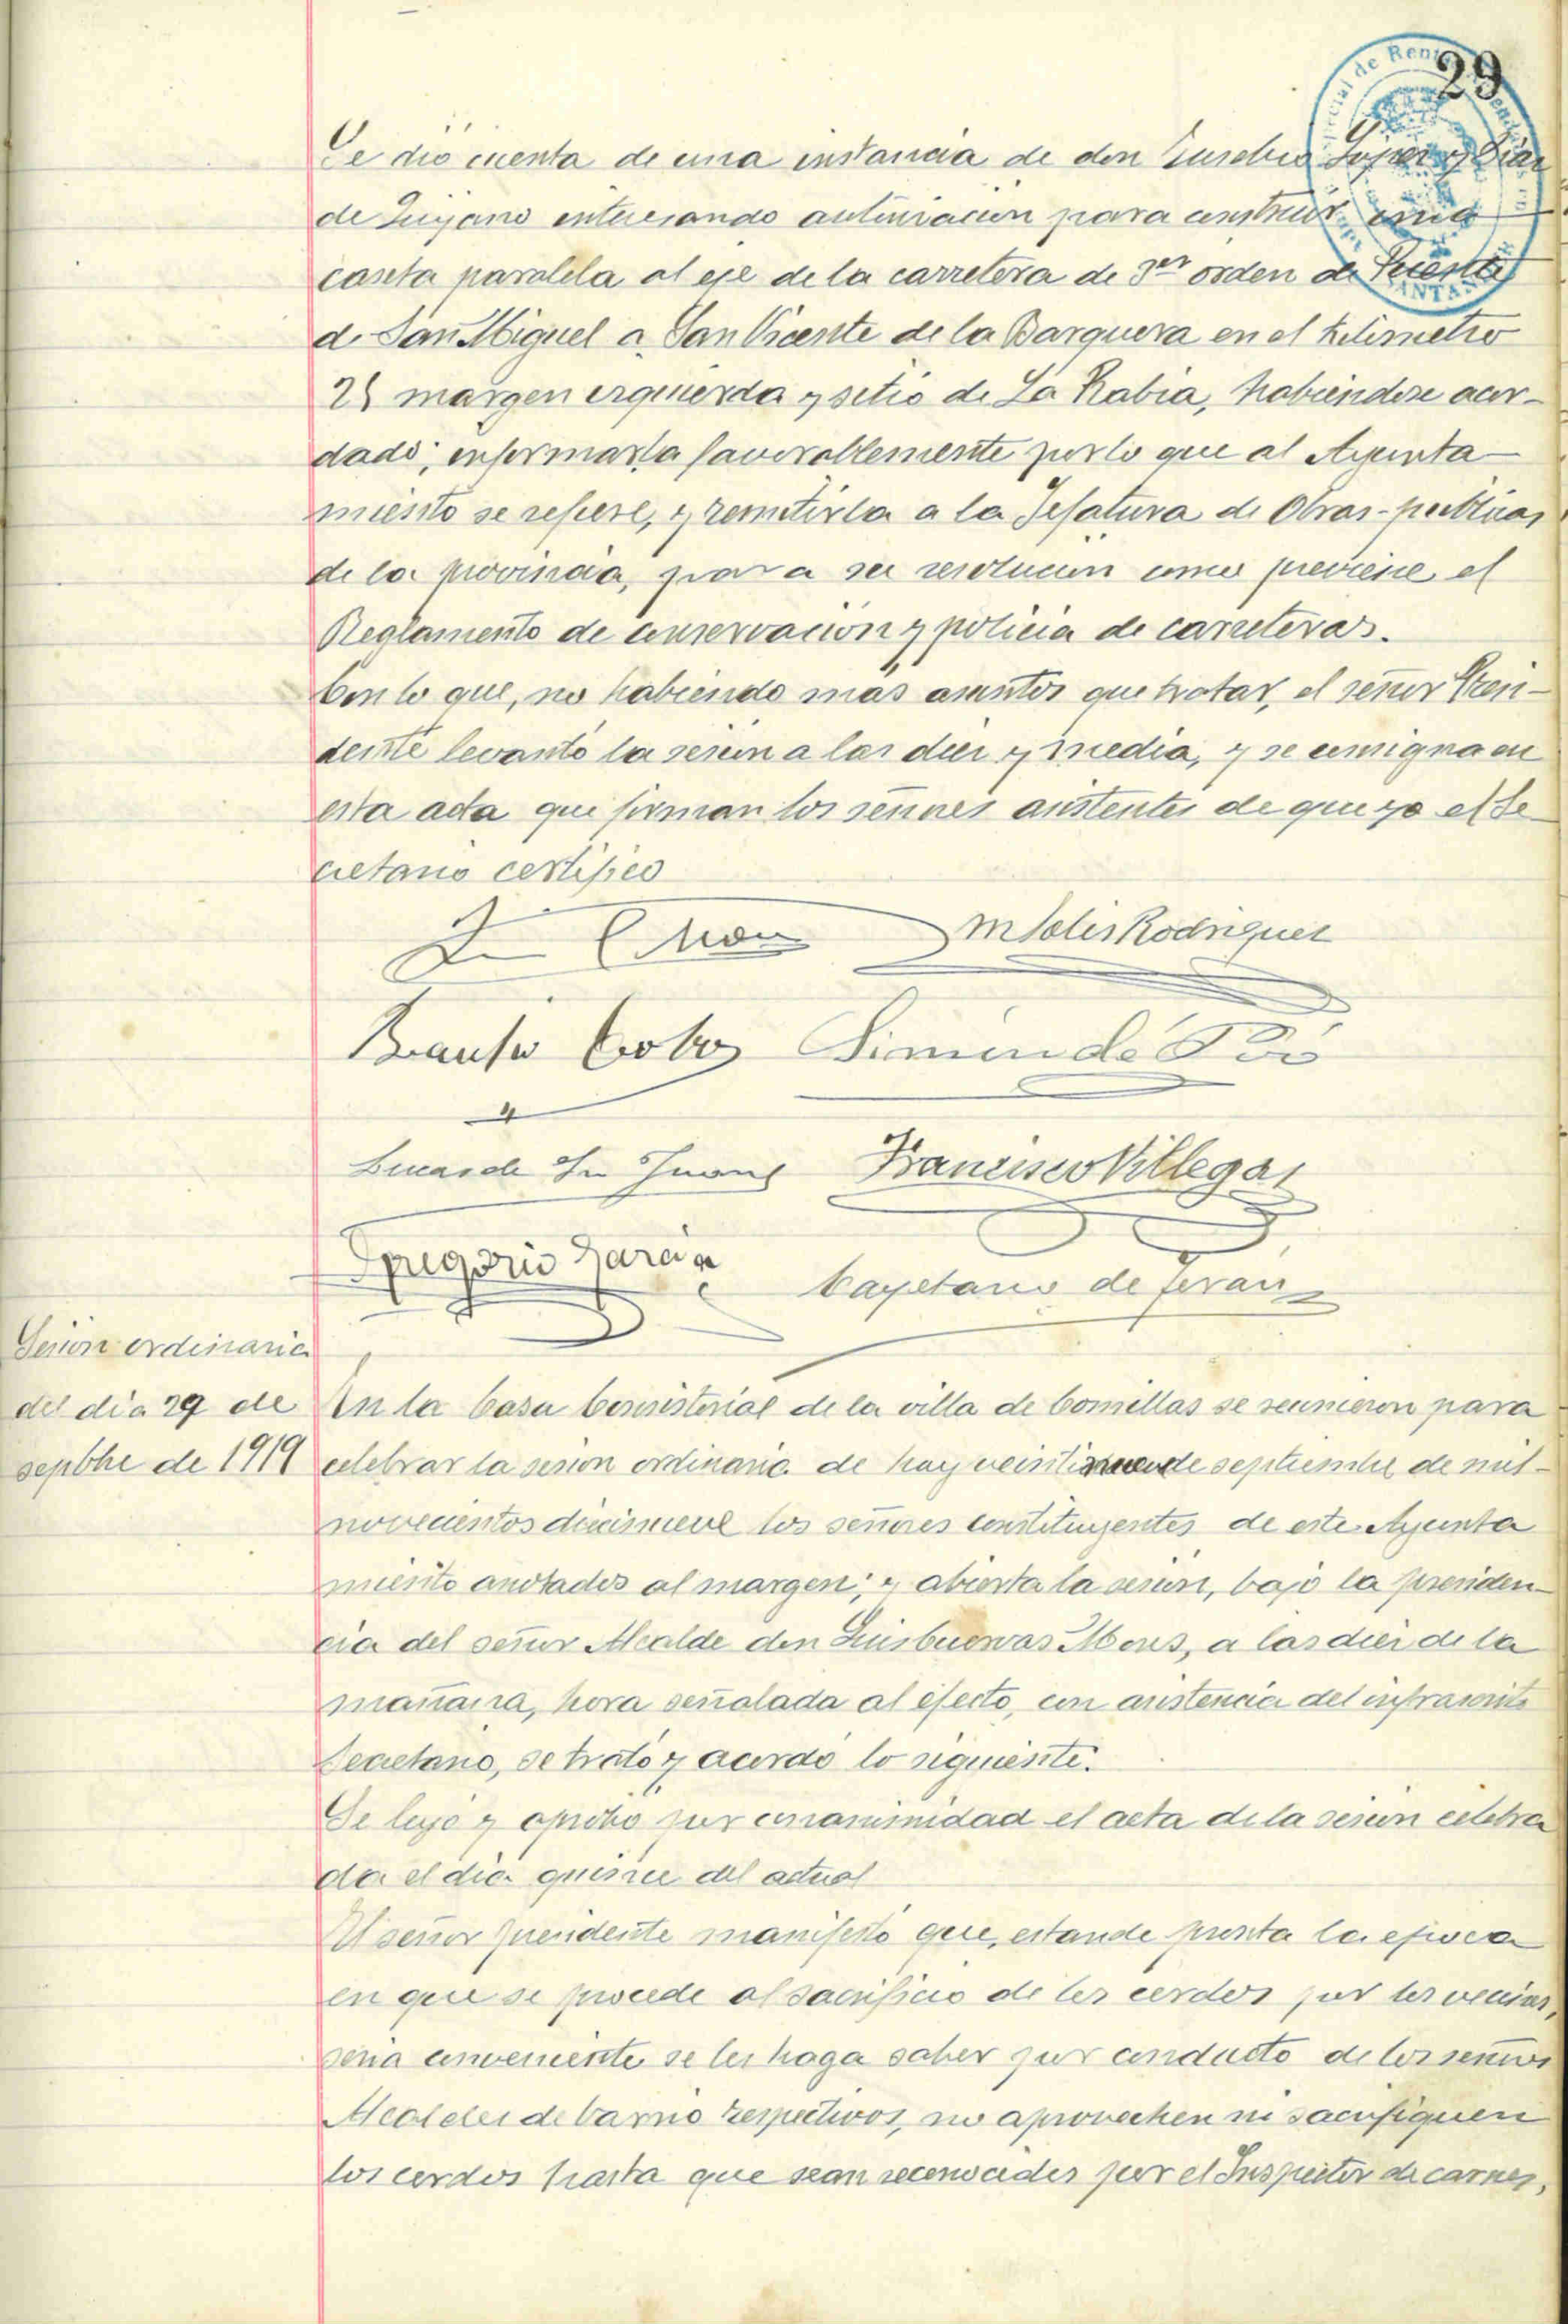 29
Se dió cuenta de una instancia de don Eusebio López y Díaz
de Quijano interesando autorización para construir una
caseta paralela al eje de la carretera de 3er orden de Puente
de San Miguel a San Vicente de la Barquera en el kilómetro
margen izquierda y sitio de La Rabia, habiendose acor-
dado; informarla favorablemente por lo que al Ayunta-
miento se refiere, y remitirla a la Jefatura de Obras-públicas
de la provincia, para su resolución como previene el
Reglamento de conservación y policía de carreteras.
Con lo que, no habiendo más asuntos que tratar, el señor Presi-
dente levantó la sesión a las diez y media, y se consigna en
esta acta que firman los señores asistentes de que yo el Se-
cretario certifico
M Solis Rodriguez
Brausio Cobos Simón de Pó
Lucas de San Juan Francisco Villegas
Gregorio Garcia
Cayetano de Terán
Sesión ordinaria
del día 29 de
sepbre de 1919
En la Casa Consistorial de la villa de Comillas se reunieron para
celebrar la sesión ordinaria de hoy veintinueve de septiembre de mil-
novecientos diecinueve los señores constituyentes de este Ayunta
miento anotados al margen; y abierta la sesión, bajo la presiden-
cia del señor Alcalde don Luis Cuevas Mons, a las diez de la
mañana, hora señalada al efecto, con asistencia del infrascrito
Secretario, se trató y acordó lo siguiente:
Se leyó y aprobó por unanimidad el acta de la sesión celebra
da el día quince del actual
El señor presidente manifestó que, estando pronta la época
en que se procede al sacrificio de los cerdos por los vecinos,
sería conveniente se les haga saber por conducto de los señores
Alcaldes de barrio respectivos, no aprovechen ni sacrifiquen
los cerdos hasta que sean reconocidos por el Inspector de carnes,